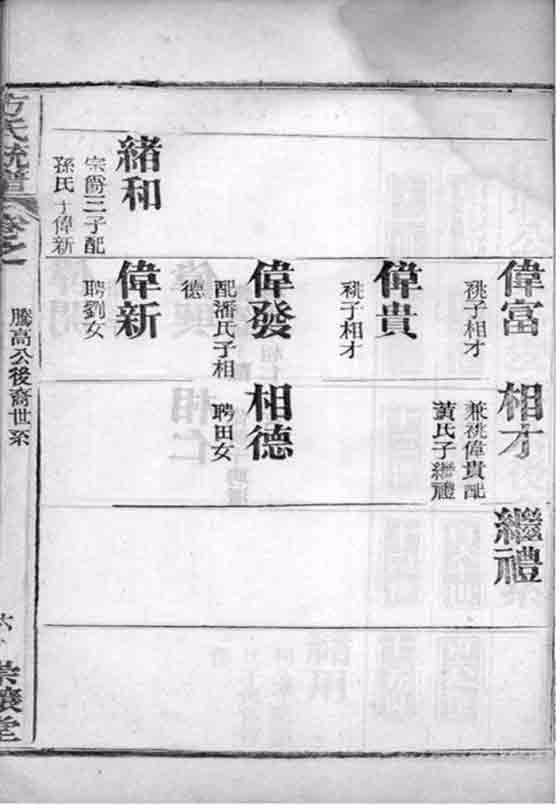 緒和
宗爵三子配
孫氏子偉新
偉富
祧子相才
偉貴
祧子相才
偉發
配潘氏子相
德
偉新
聘劉女
相才
兼祧偉貴配
黃氏子繼禮
相德
聘田女
繼禮
方氏統譜
卷之一
騰高公後裔世系
六
堂